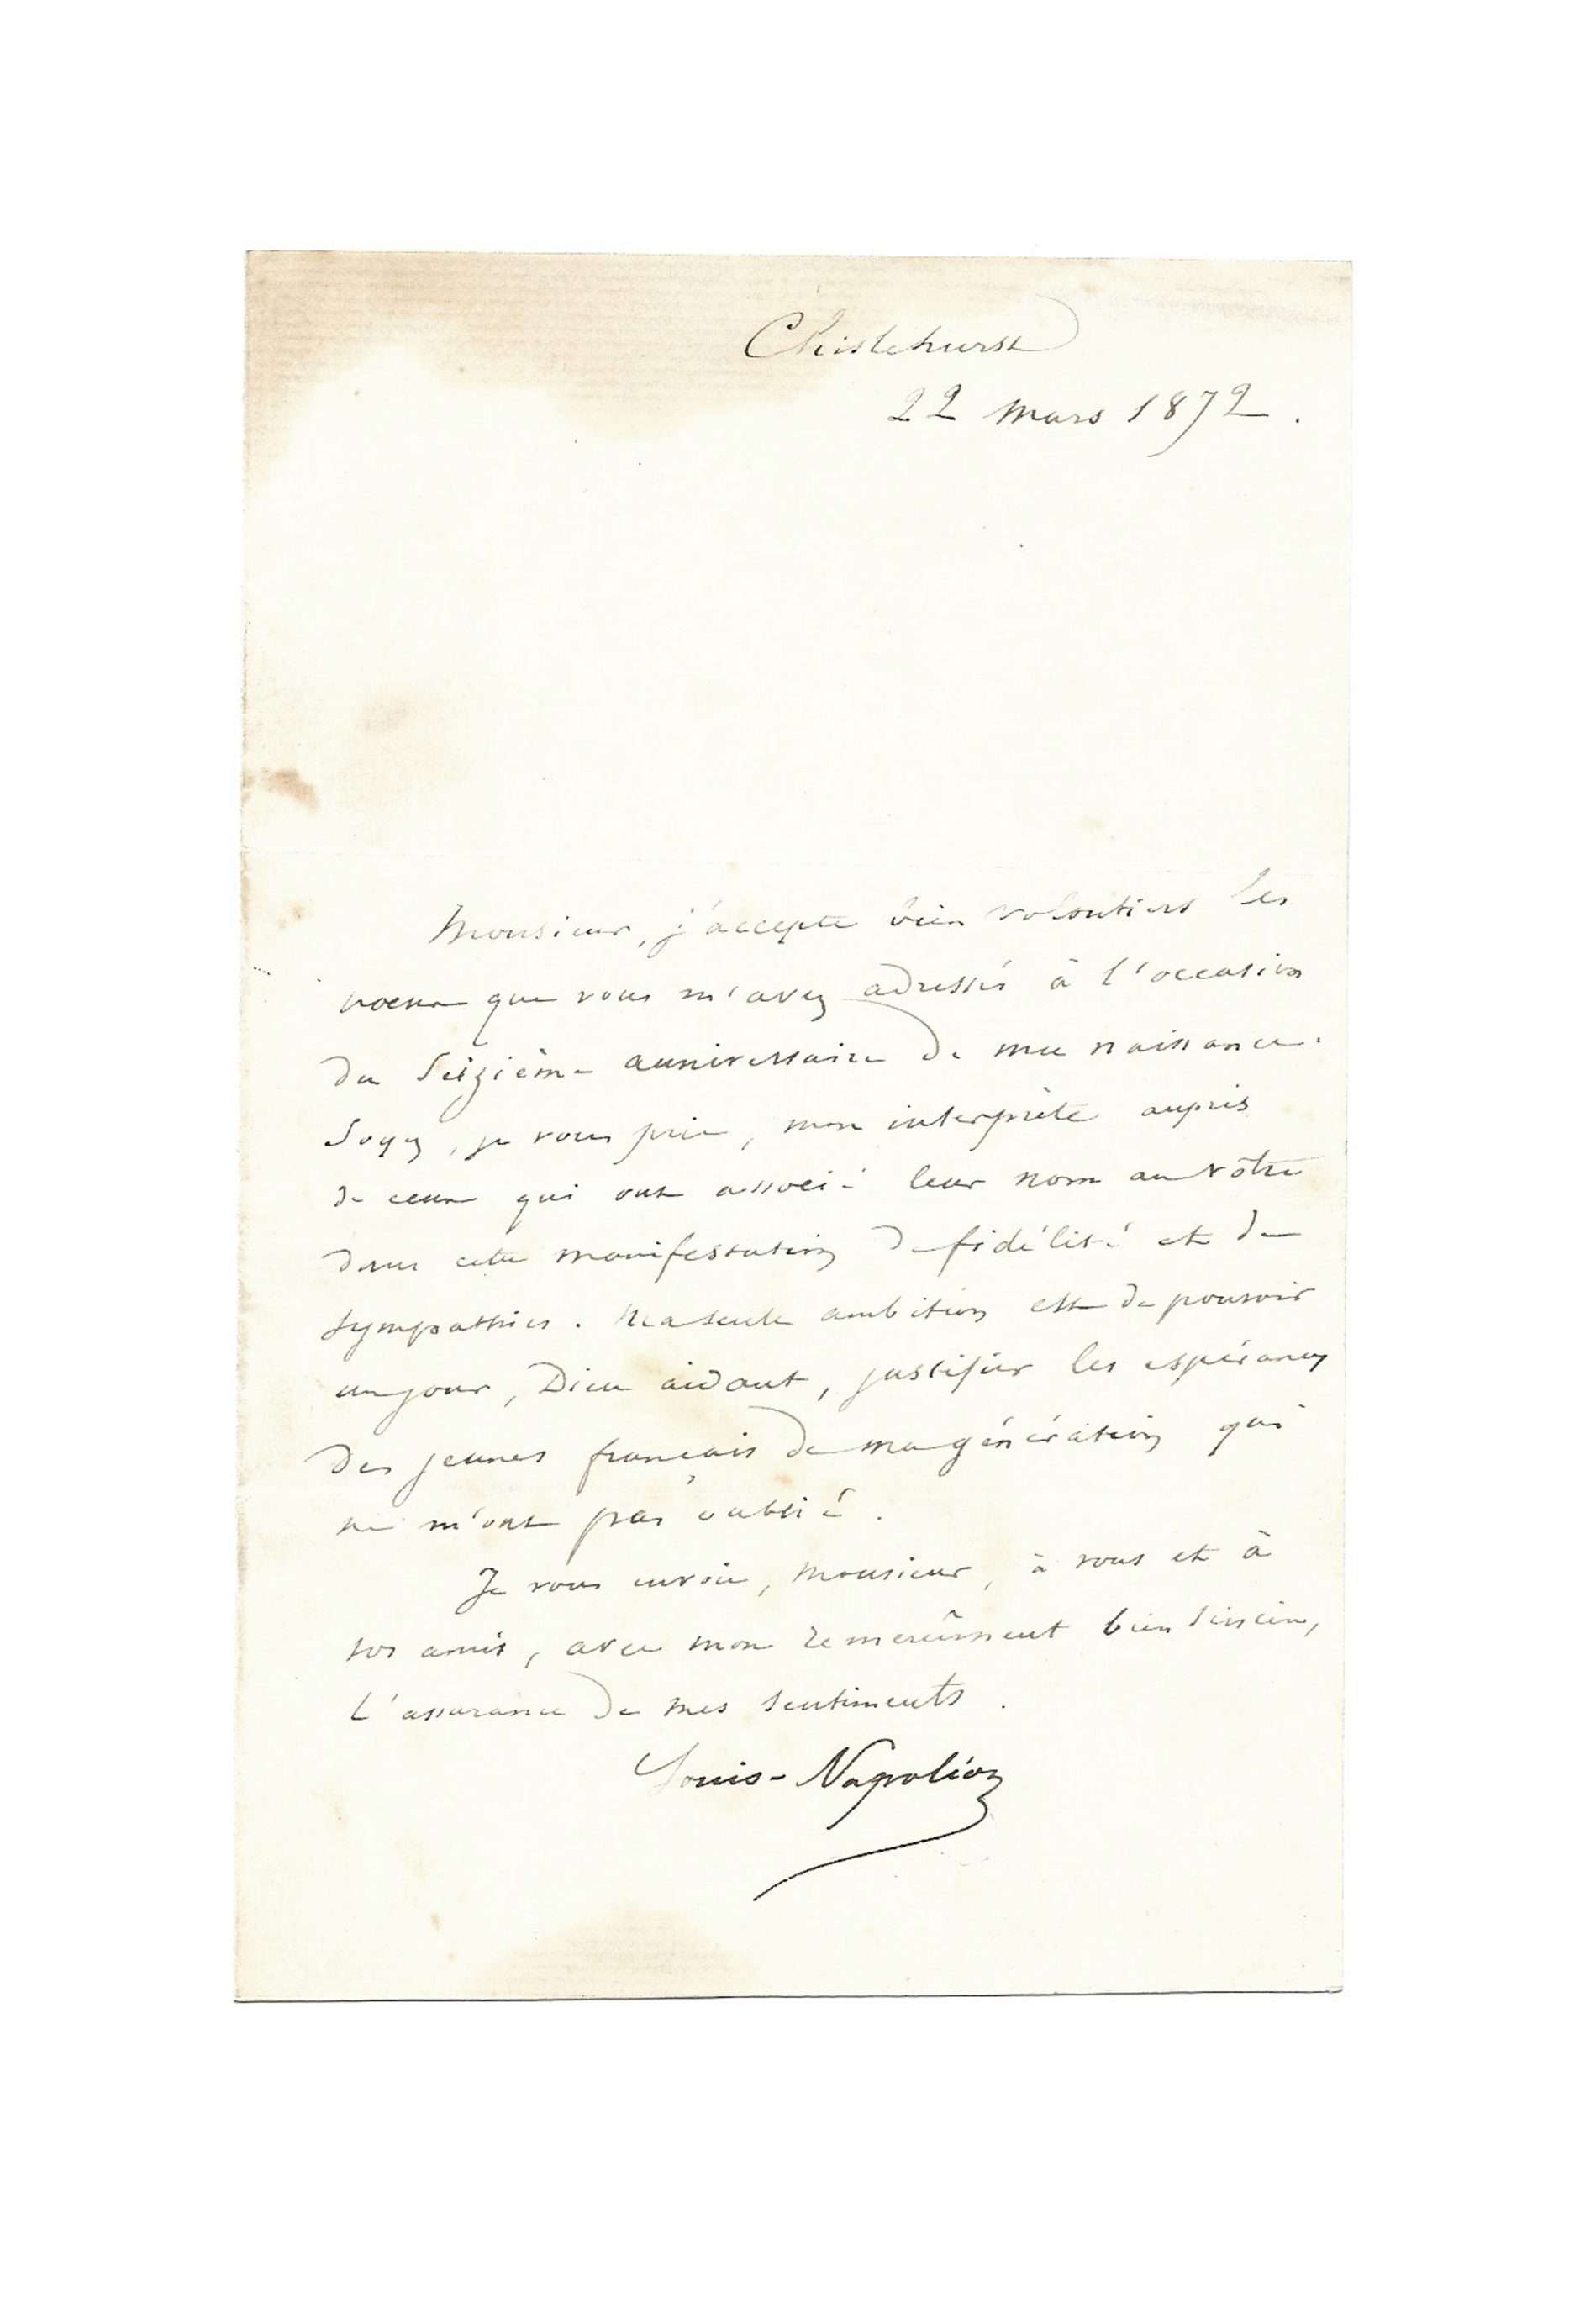 Chislehurst
22 mars 1872.
Monsieur, j'accepte bien volontiers les
voeux que vous m'avez adressés à l'occasion
du Seizième anniversaire de ma naissance.
Soyez, je vous prie, mon interprète auprès
de ceux qui ont associé leur nom au vôtre
dans cette manifestation de fidélité et de
sympathies. Ma seule ambition est de pouvoir
un jour, Dieu aidant, justifier les espérances
des jeunes français de ma génération qui
ne m'ont pas oublié.
Je vous envoie, Monsieur, à vous et à
vos amis, avec mon remerciment bien sincère,
L'assurance de mes sentiments.
Louis-Napoléon